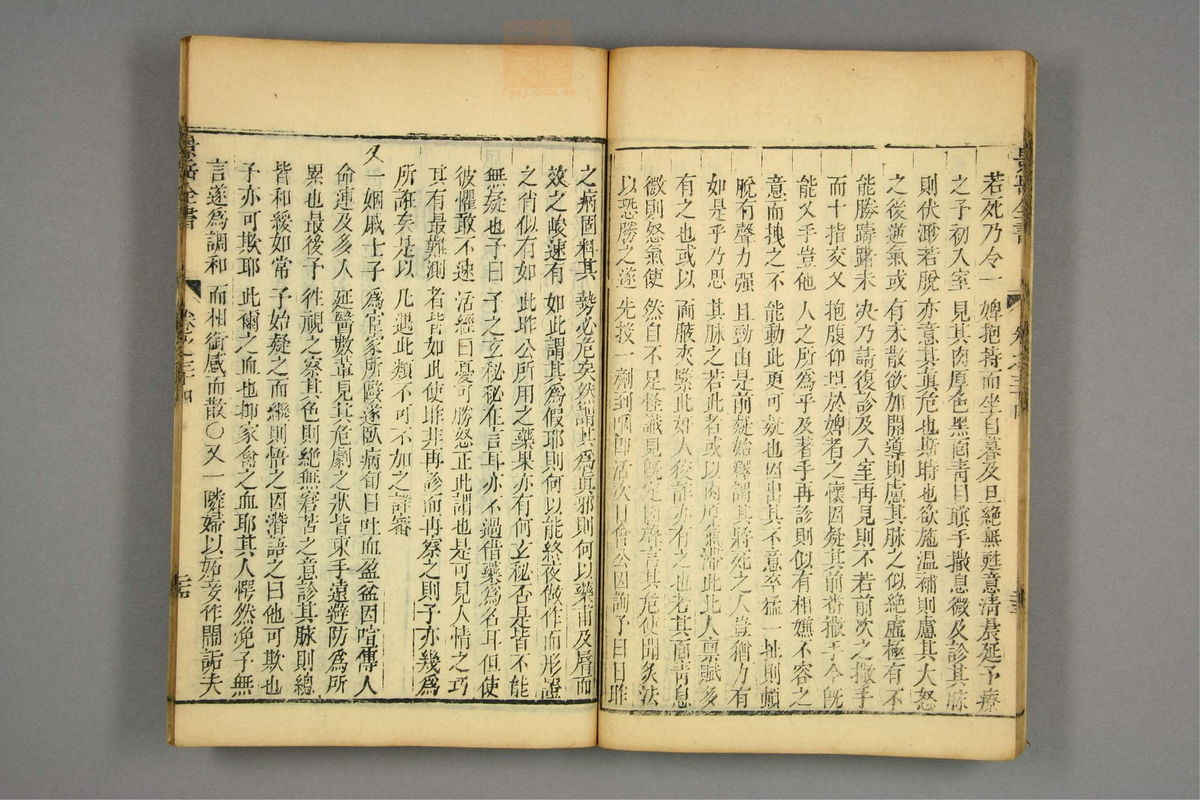 景岳全書 卷之三十四
若死乃令一婢抱持而坐自暮及旦絕無甦意清晨延予療
之予初入室見其肉厚色黑面青目瞑手撒息微及診其脉
則伏渺若脫亦意其真危也斯時也欲施溫補則慮其大怒
之後逆氣或有未散欲加開導則慮其脉之似絕虛極有不
能勝躊躇未決乃請復診及入室再見則不若前次之撒手
而十指交叉抱腹仰坦於婢者之懷因疑其前番撒手今旣
能叉手豈他人之所爲乎及著手再診則似有相嫌不容之
意而拽之不能動此更可疑也因出其不意卒猛一扯則頓
脫有聲力强且勁由是前疑始釋謂其將死之人豈猶力有
如是乎乃思其脉之若此者或以肉厚氣滯此北人稟賦多
有之也或以兩腋夾緊此奸人狡詐亦有之也若其面靑息
微則怒氣使然自不足怪識見旣定因聲言其危使聞灸法
以恐勝之遂先投一劑到咽卽活次日會公因詢予曰日昨
之病固料其勢必危矣然謂其爲真邪則何以藥甫及唇而
效之峻速有如此謂其爲假耶則何以能終夜倣作而形證
之肖似有如此昨公所用之藥果亦有何玄秘否是皆不能
無疑也予曰予之玄秘秘在言耳亦不過借藥爲名耳但使
彼懼敢不速活經曰憂可勝怒正此謂也是可見人情之巧
其有最難測者皆如此使昨非再診而再察之則予亦幾爲
所誑矣是以凡遇此類不可不加之詳審
又一姻戚士子爲宦家所毆遂臥病旬日吐血盈盆因喧傳人
命連及多人延醫數輩見其危劇之狀皆束手遠避防爲所
累也最後予徃視之察其色則絕無窘苦之意診其脉則總
皆和緩如常予始疑之而繼則悟之因潛語之曰他可欺也
予亦可欺耶此爾之血也抑家禽之血耶其人愕然浼予無
言遂爲調和而相銜感而散○又一隣婦以妬妾作鬧詬夫
景岳全書 卷之三十四